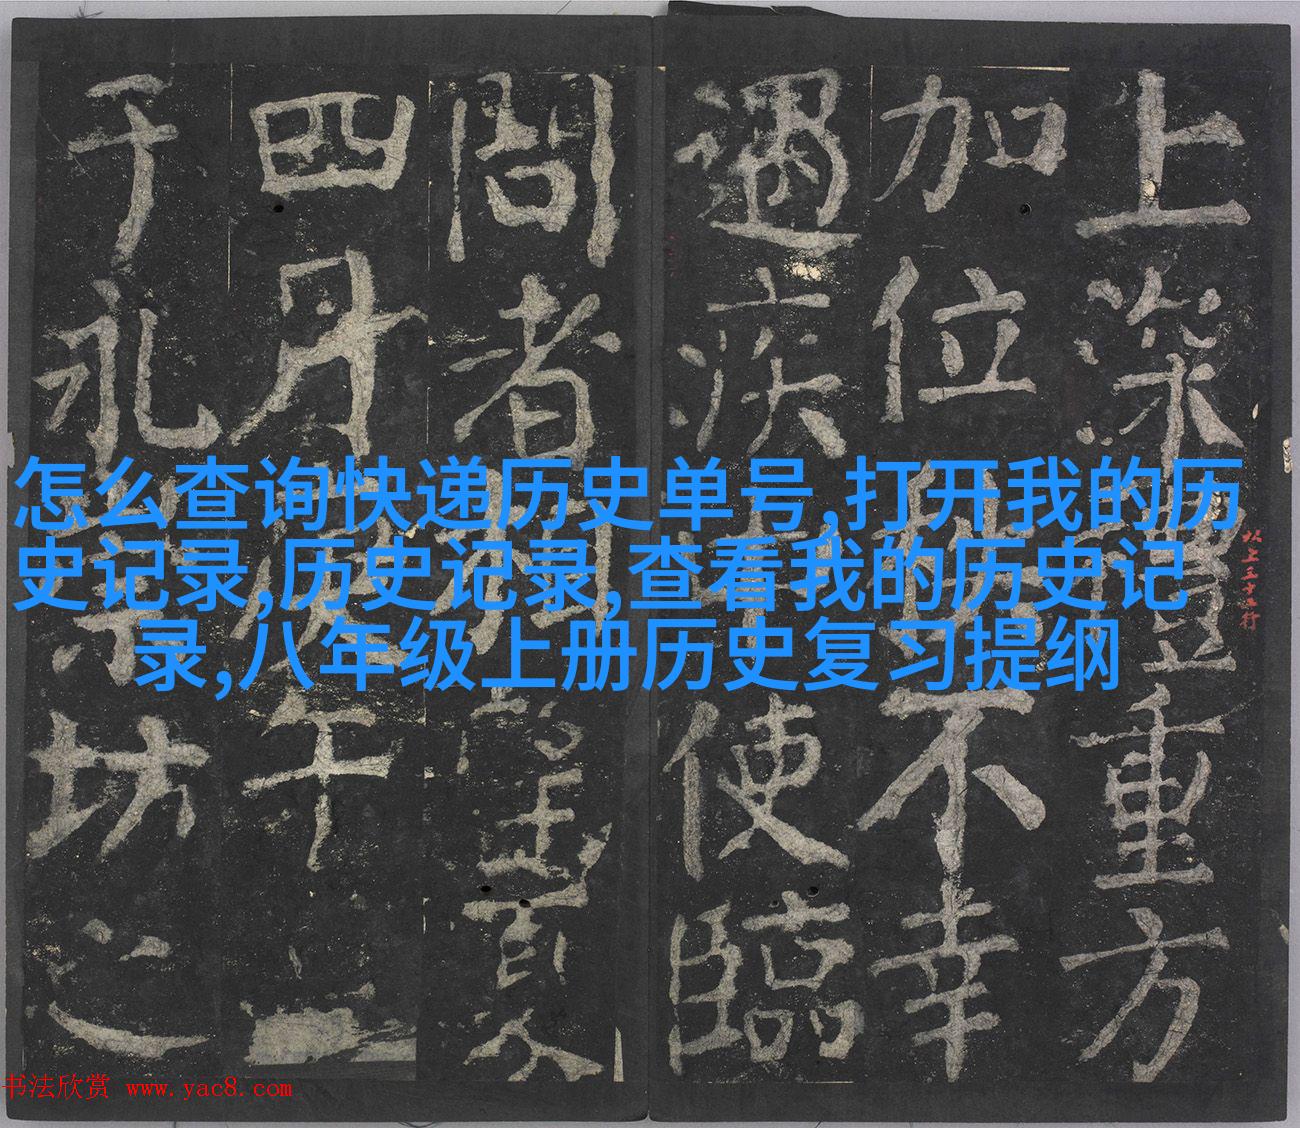 怎么查询快递历史单号,打开我的历
史记录,历史记录,查看我的历史记
录,八年级上册历史复习提纲
上深重方
加位不幸
遇疾使臨
問者夏
四月午
于永坊之
以上五十五行
书法欣赏 www.yac8.com